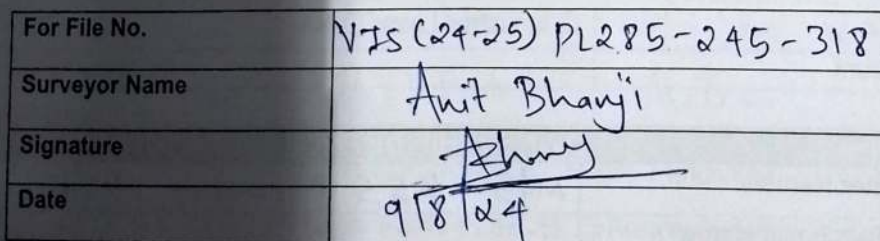 For File No. VIS (24-25) PL285-245-318
Surveyor Name Anit Bhanji
Signature
Date 9/8/24